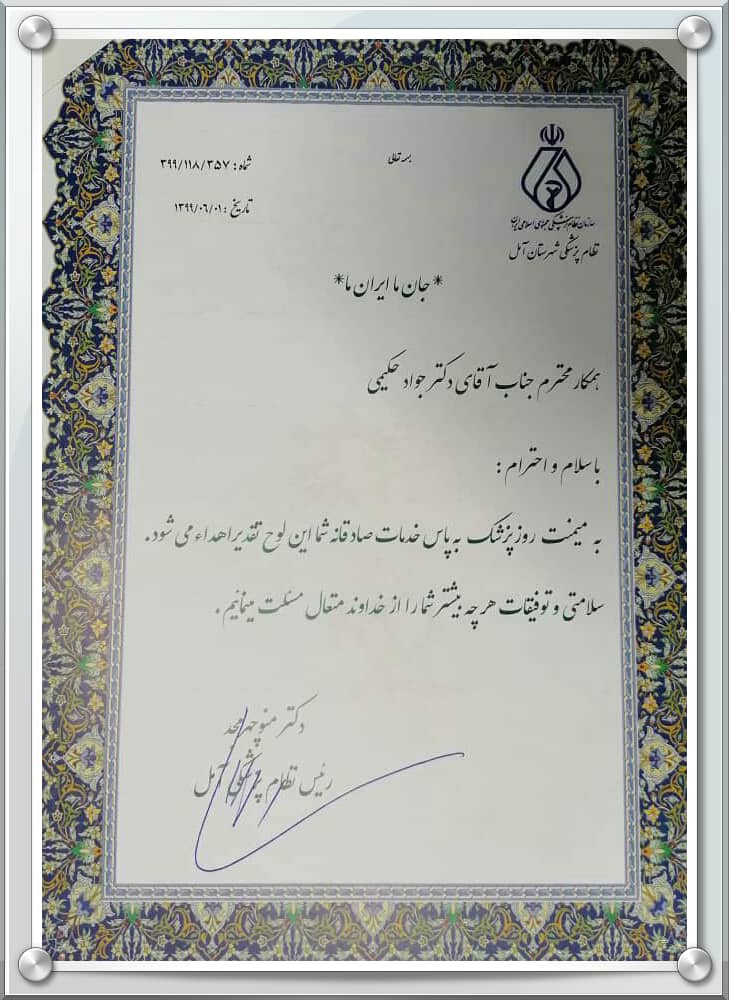 بسمه تعالی
شماره: ۳۹۹/۱۱۸/۳۵۷
تاریخ: ۱۳۹۹/۰۶/۰۱
سازمان نظام پزشکی جمهوری اسلامی ایران
نظام پزشکی شهرستان آمل
*جان ما ایران ما*
همکار محترم جناب آقای دکتر جواد حکیمی
با سلام و احترام :
به میمنت روز پزشک به پاس خدمات صادقانه شما این لوح تقدیر اهداء می شود.
سلامتی و توفیقات هر چه بیشتر شما را از خداوند متعال مسئلت مینمائیم.
دکتر منوچهر مجد
رئیس نظام پزشکی آمل